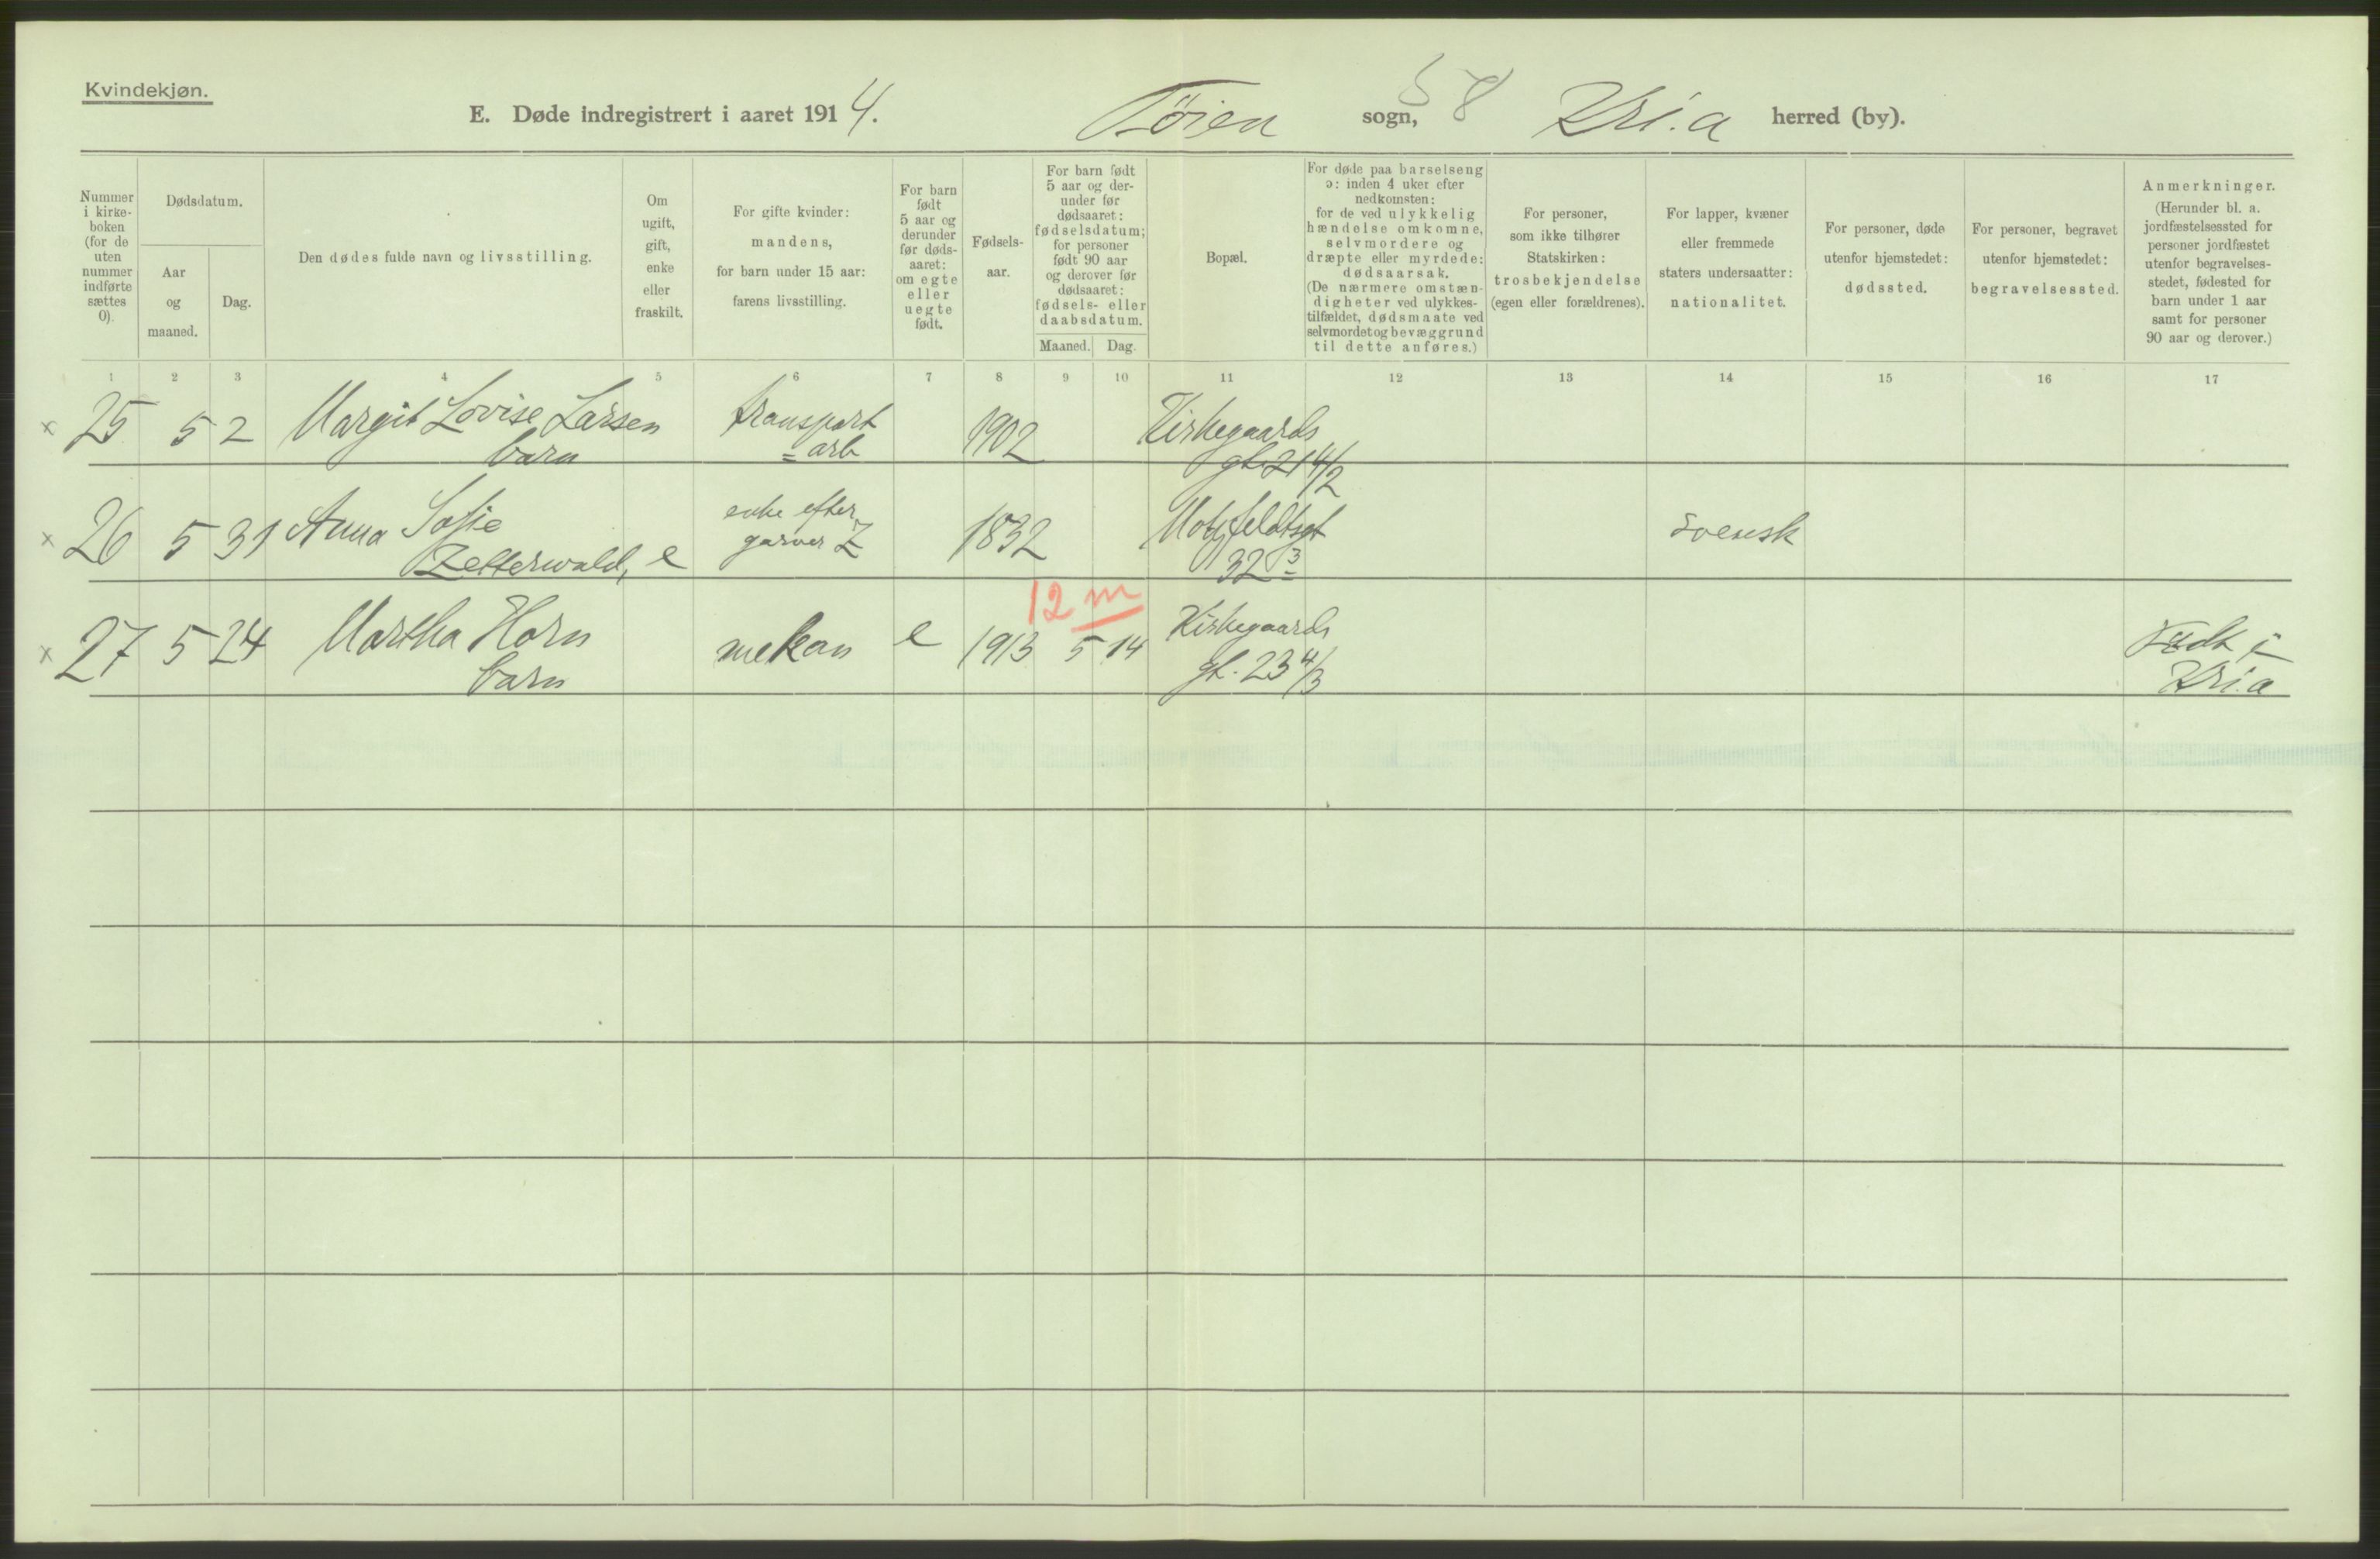 Kvindekjøn.
E. Døde indregistrert i aaret 1914.
Tøien sogn, 58 Kri.a herred (by).
Nummer
i kirke-
boken
(for de
uten
nummer
indførte
sættes
0).
Dødsdatum.
Aar
og
maaned.
Dag.
Den dødes fulde navn og livsstilling.
Om
ugift,
gift,
enke
eller
fraskilt.
For gifte kvinder:
mandens,
for barn under 15 aar:
farens livsstilling.
For barn
født
5 aar og
derunder
før døds-
aaret:
om egte
eller
uegte
født.
Fødsels-
aar.
For barn født
5 aar og der-
under før
dødsaaret:
fødselsdatum;
for personer
født 90 aar
og derover før
dødsaaret:
fødsels- eller
daabsdatum.
Maaned.
Dag.
Bopæl.
For døde paa barselseng
ɔ: inden 4 uker efter
nedkomsten:
for de ved ulykkelig
hændelse omkomne,
selvmordere og
dræpte eller myrdede:
dødsaarsak.
(De nærmere omstæn-
digheter ved ulykkes-
tilfældet, dødsmaate ved
selvmordet og bevæggrund
til dette anføres.)
For personer,
som ikke tilhører
Statskirken:
trosbekjendelse
(egen eller forældrenes).
For lapper, kvæner
eller fremmede
staters undersaatter:
nationalitet.
For personer, døde
utenfor hjemstedet:
dødssted.
For personer, begravet
utenfor hjemstedet:
begravelsessted.
Anmerkninger.
(Herunder bl. a.
jordfæstelsessted for
personer jordfæstet
utenfor begravelses-
stedet, fødested for
barn under 1 aar
samt for personer
90 aar og derover.)
1 2 3 4 5 6 7 8 9 10 11 12 13 14 15 16 17
x 25 5 2 Margit Lovise Larsen transport 1902 Kirkegaards
barn = arb gt. 21 4/2
x 26 5 31 Anna Sofie enke efter 1832 Motzfeldtsgt
Zetterwald, e garver Z 32 3 svensk
12 m
x 27 5 24 Martha Horn mekan e 1913 5 14 Kirkegaards Født i
barn gt. 23 4/3 Kri.a